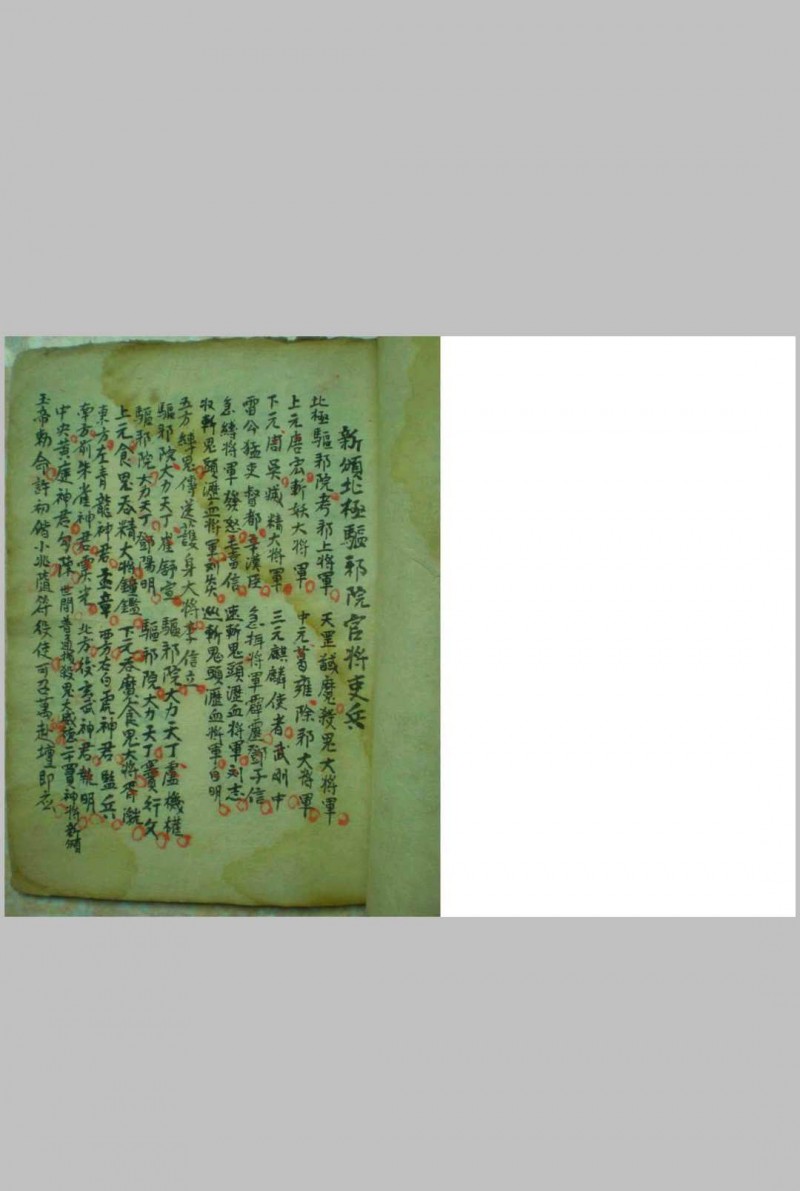 新頒北極驅邪院官將吏兵
北極驅邪院考邪上將軍 天罡誠魔殺鬼大將軍
上元唐宏斬妖大將軍 中元葛雍除邪大將軍
下元周吳滅精大將軍 三元麒麟使者武剛中
雷公猛吏督都辛漢臣 急捉將軍霹靂鄧子信
急縛將軍發怒 信 速斬鬼頭瀝血將軍刘志
收斬鬼頭瀝血將軍刘 巡斬鬼頭瀝血將軍 明
五方縛鬼傳送護身大將李信立
驅邪院大力天丁崔舒宣 驅邪院大力天丁盧機權
驅邪院大力天丁鄧陽明 驅邪院大力天丁竇行文
上元食鬼吞精大將鐘鑑 下元吞魔食鬼大將
東方左青龍神君孟章 西方右白虎神君監兵
南方前朱雀神君 光 北方後玄武神君執明
中央黃庭神君勾陳 世間普 殺鬼大威德 神將新頒
玉帝勅命許初階小兆隨符役使可召萬 赴壇即應